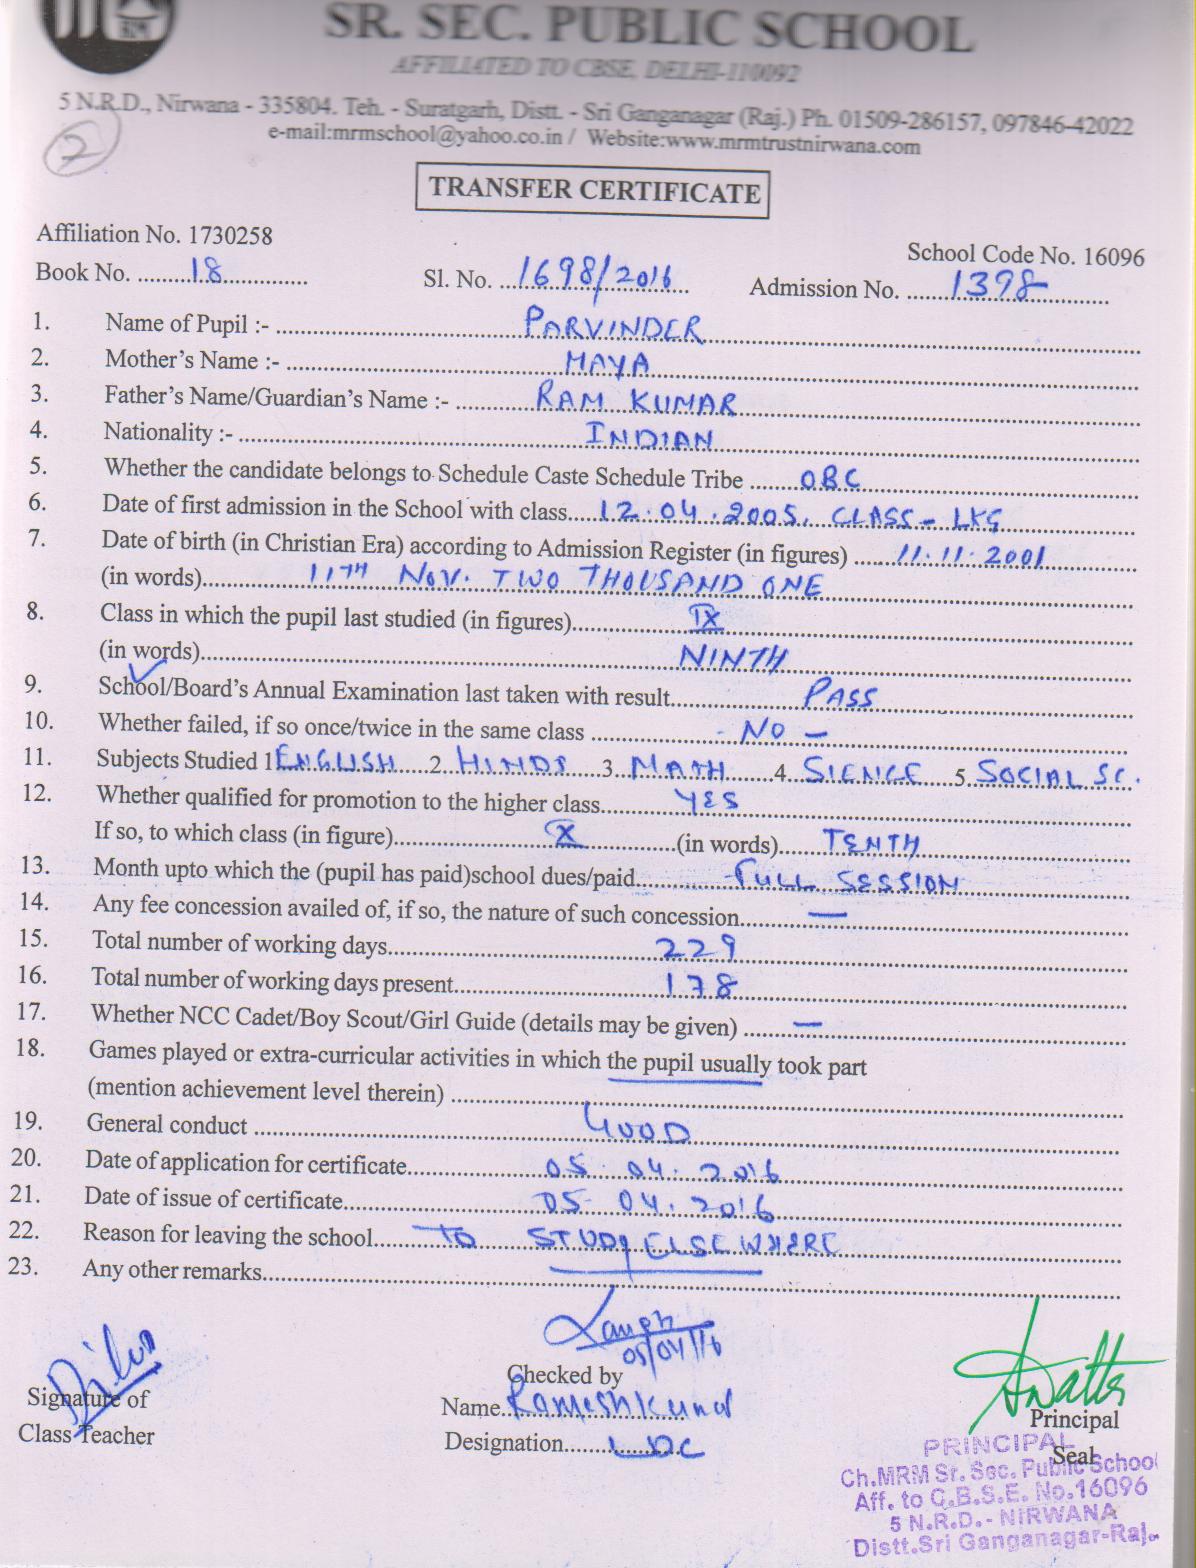 SR. SEC. PUBLIC SCHOOL
AFFILIATED TO CBSE, DELHI-110092
5 N.R.D., Nirwana - 335804. Teh. - Suratgarh, Distt. - Sri Ganganagar (Raj.) Ph. 01509-286157, 097846-42022
e-mail:mrmschool@yahoo.co.in / Website:www.mrmtrustnirwana.com
2
TRANSFER CERTIFICATE
Affiliation No. 1730258 School Code No. 16096
Book No. 18 Sl. No. 1698/2016 Admission No. 1398
1. Name of Pupil :- PARVINDER
2. Mother's Name :- MAYA
3. Father's Name/Guardian's Name :- RAM KUMAR
4. Nationality :- INDIAN
5. Whether the candidate belongs to Schedule Caste Schedule Tribe OBC
6. Date of first admission in the School with class 12.04.2005, CLASS - LKG
7. Date of birth (in Christian Era) according to Admission Register (in figures) 11.11.2001
(in words) 11TH NOV. TWO THOUSAND ONE
8. Class in which the pupil last studied (in figures) IX
(in words) NINTH
9. School/Board's Annual Examination last taken with result PASS
10. Whether failed, if so once/twice in the same class - NO -
11. Subjects Studied 1 ENGLISH 2 HINDI 3 MATH 4 SIENCE 5 SOCIAL SC.
12. Whether qualified for promotion to the higher class YES
If so, to which class (in figure) X (in words) TENTH
13. Month upto which the (pupil has paid)school dues/paid FULL SESSION
14. Any fee concession availed of, if so, the nature of such concession —
15. Total number of working days 229
16. Total number of working days present 178
17. Whether NCC Cadet/Boy Scout/Girl Guide (details may be given) —
18. Games played or extra-curricular activities in which the pupil usually took part
(mention achievement level therein)
19. General conduct GOOD
20. Date of application for certificate 05.04.2016
21. Date of issue of certificate 05.04.2016
22. Reason for leaving the school TO STUDY ELSEWHERE
23. Any other remarks
05/04/16
Signature of
Class Teacher
Checked by
Name Rameshkumar
Designation LDC
Principal
Seal
PRINCIPAL
Ch.MRM Sr. Sec. Public School
Aff. to C.B.S.E. No.16096
5 N.R.D.- NIRWANA
Distt.Sri Ganganagar-Raj.